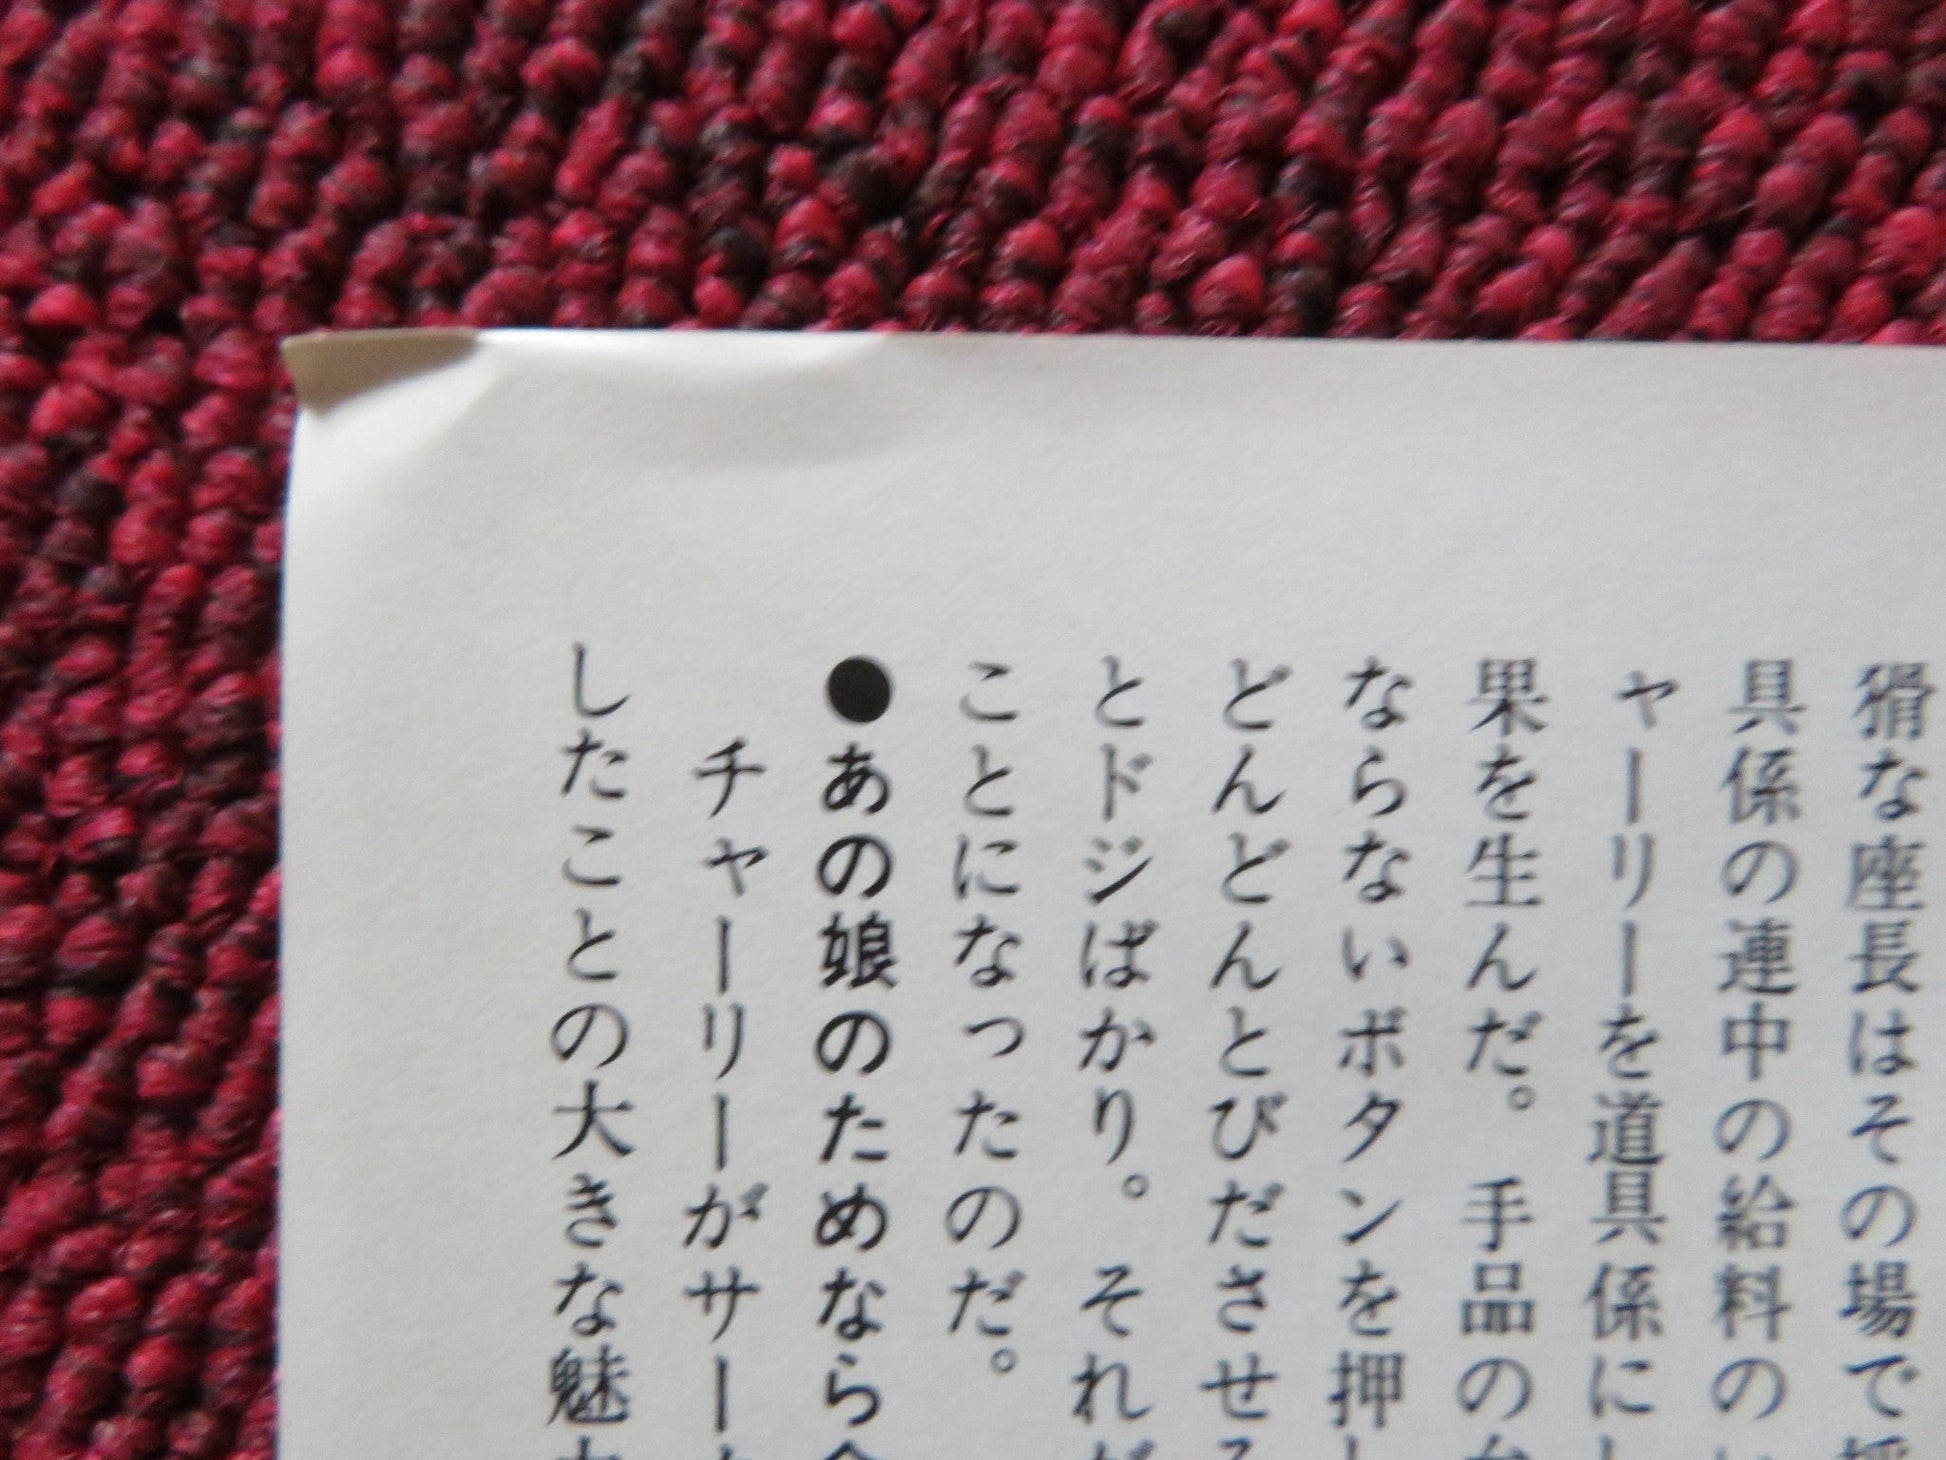 猾な座長はその場で
具係の連中の給料の
ャーリーを道具係に
果を生んだ。手品の
ならないボタンを押
どんどんとびださせ
とドジばかり。それが
ことになったのだ。
●あの娘のためなら
チャーリーがサー
したことの大きな魅